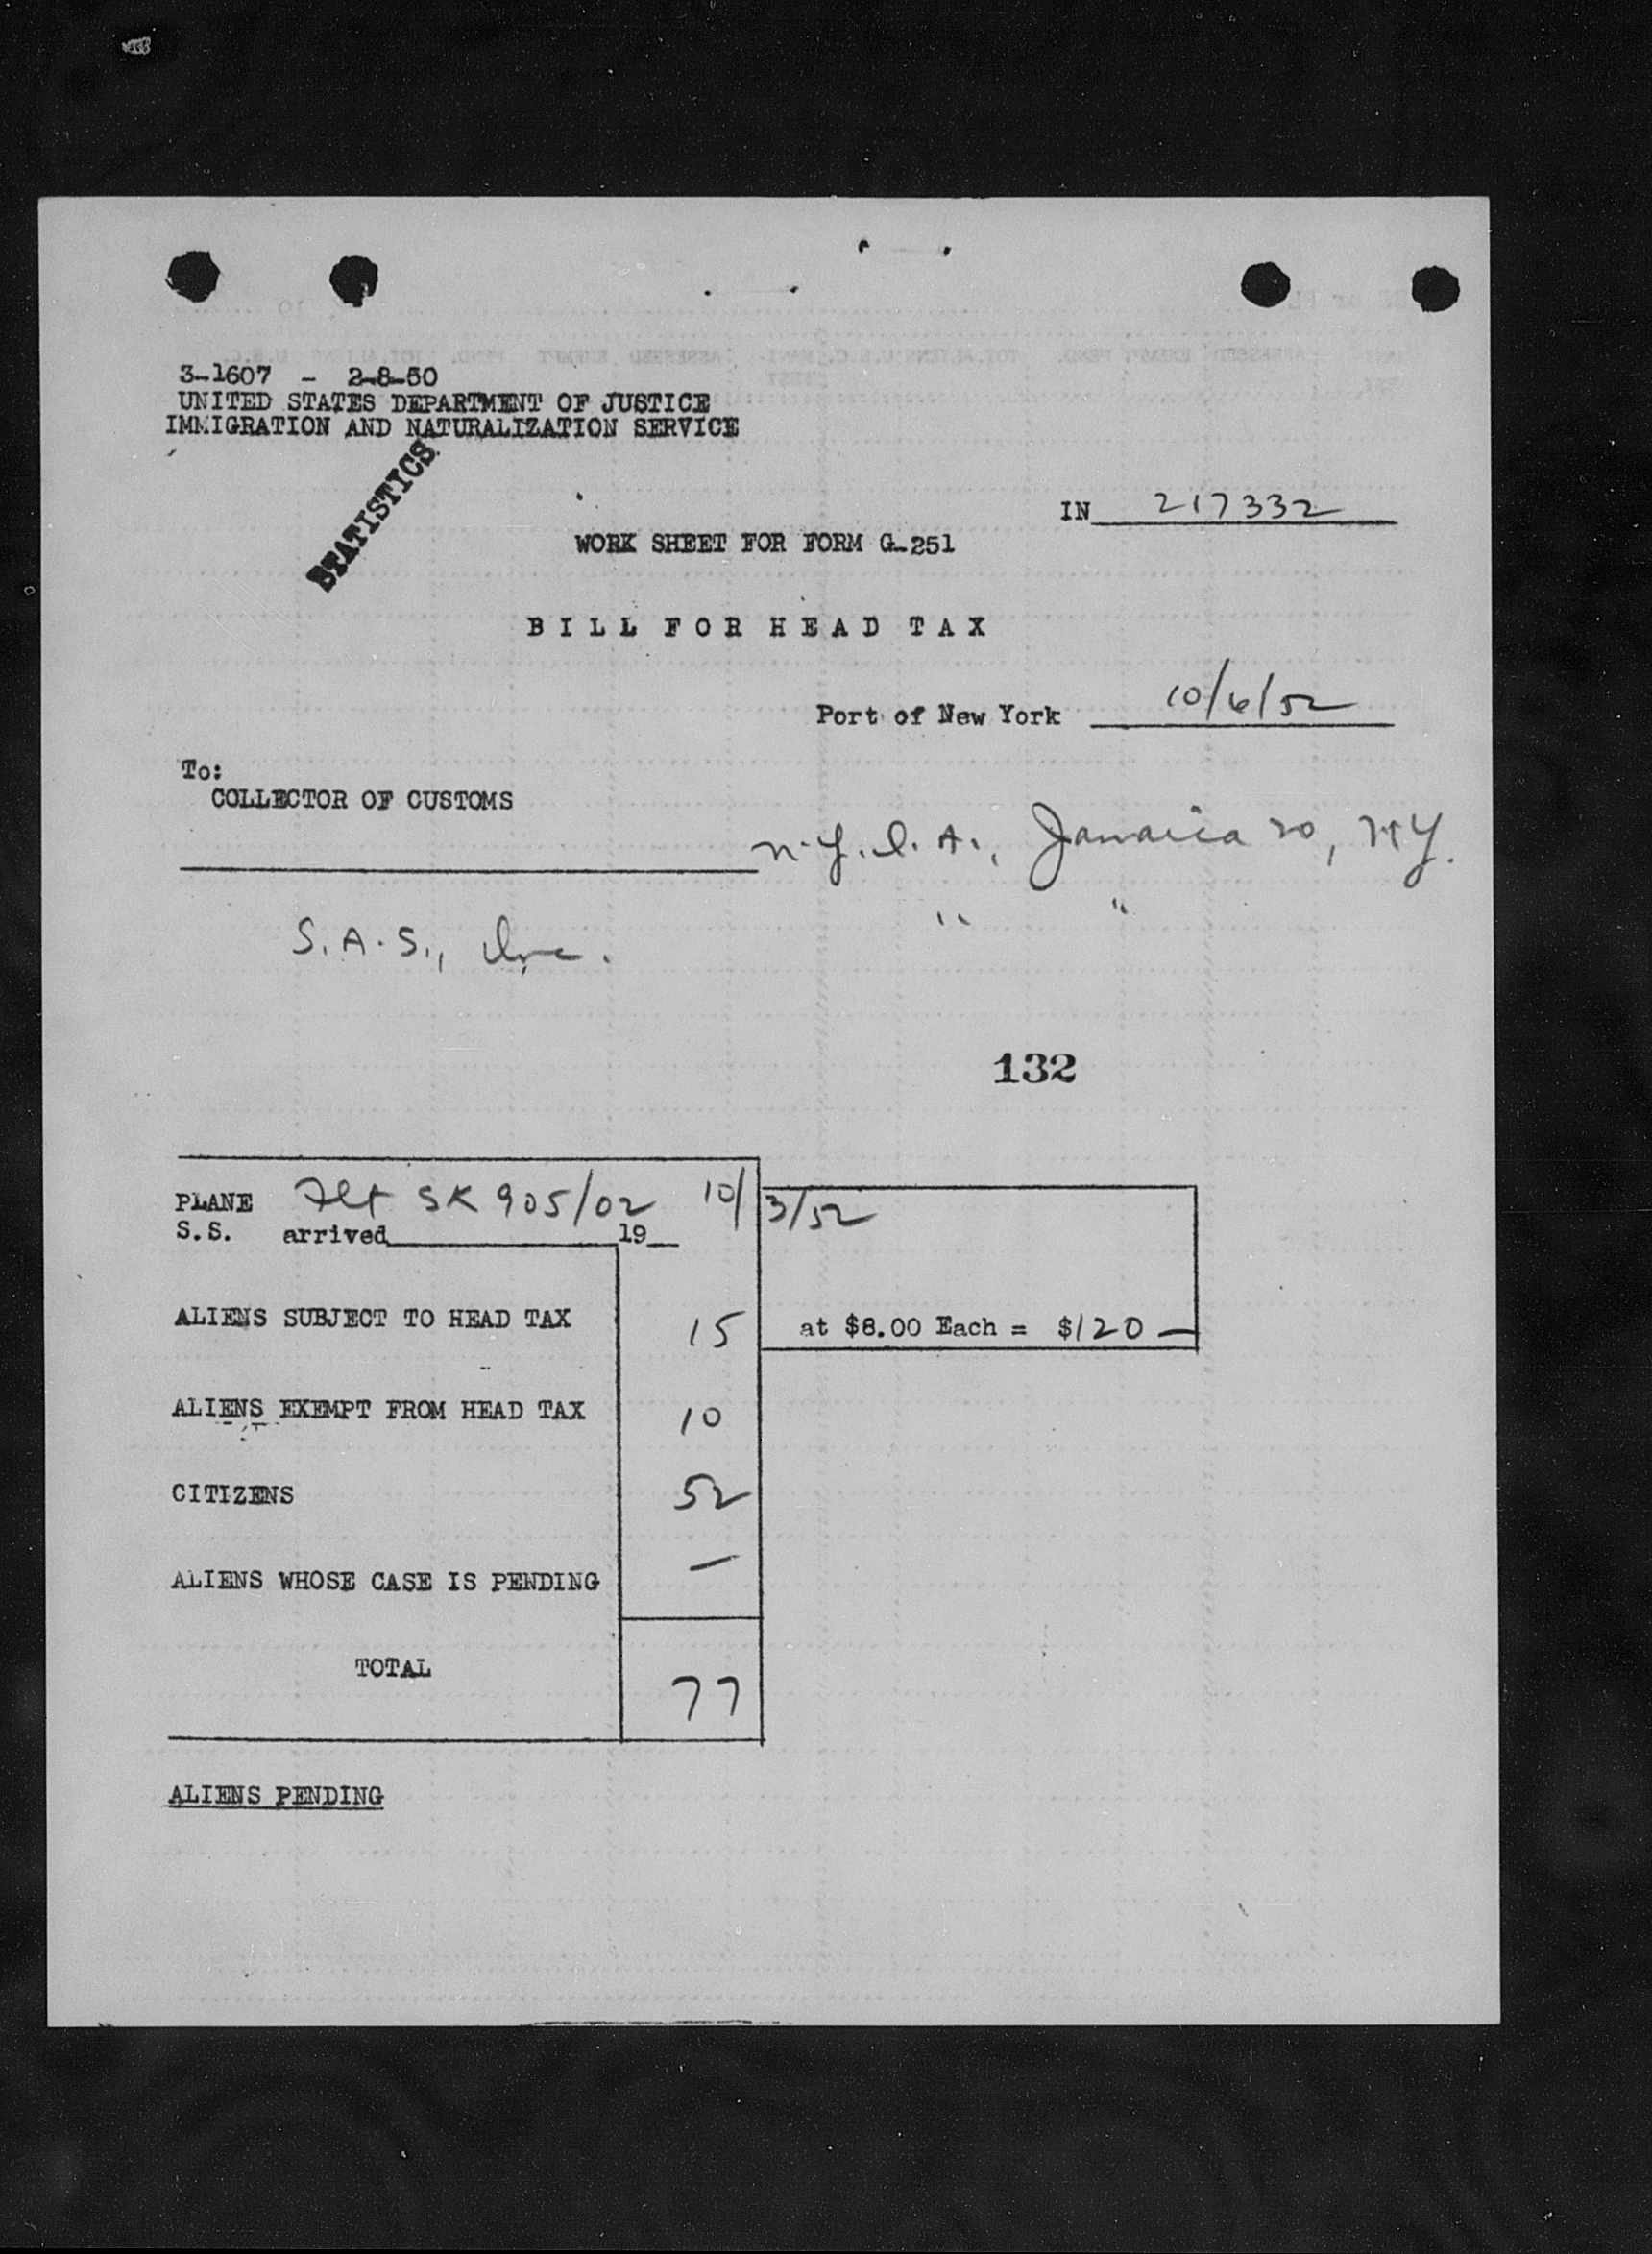 3-1607 - 2-8-50
UNITED STATES DEPARTMENT OF JUSTICE
IMMIGRATION AND NATURALIZATION SERVICE
STATISTICS
IN 217332
WORK SHEET FOR FORM G-251
BILL FOR HEAD TAX
Port of New York 10/6/52
To:
COLLECTOR OF CUSTOMS
N.Y.I.A., Jamaica 20, NY.
S.A.S., Inc. " "
132
PLANE Flt SK 905/02 10/3/52
S.S. arrived 19
ALIENS SUBJECT TO HEAD TAX 15 at $8.00 Each = $120 —
ALIENS EXEMPT FROM HEAD TAX 10
CITIZENS 52
ALIENS WHOSE CASE IS PENDING —
TOTAL 77
ALIENS PENDING